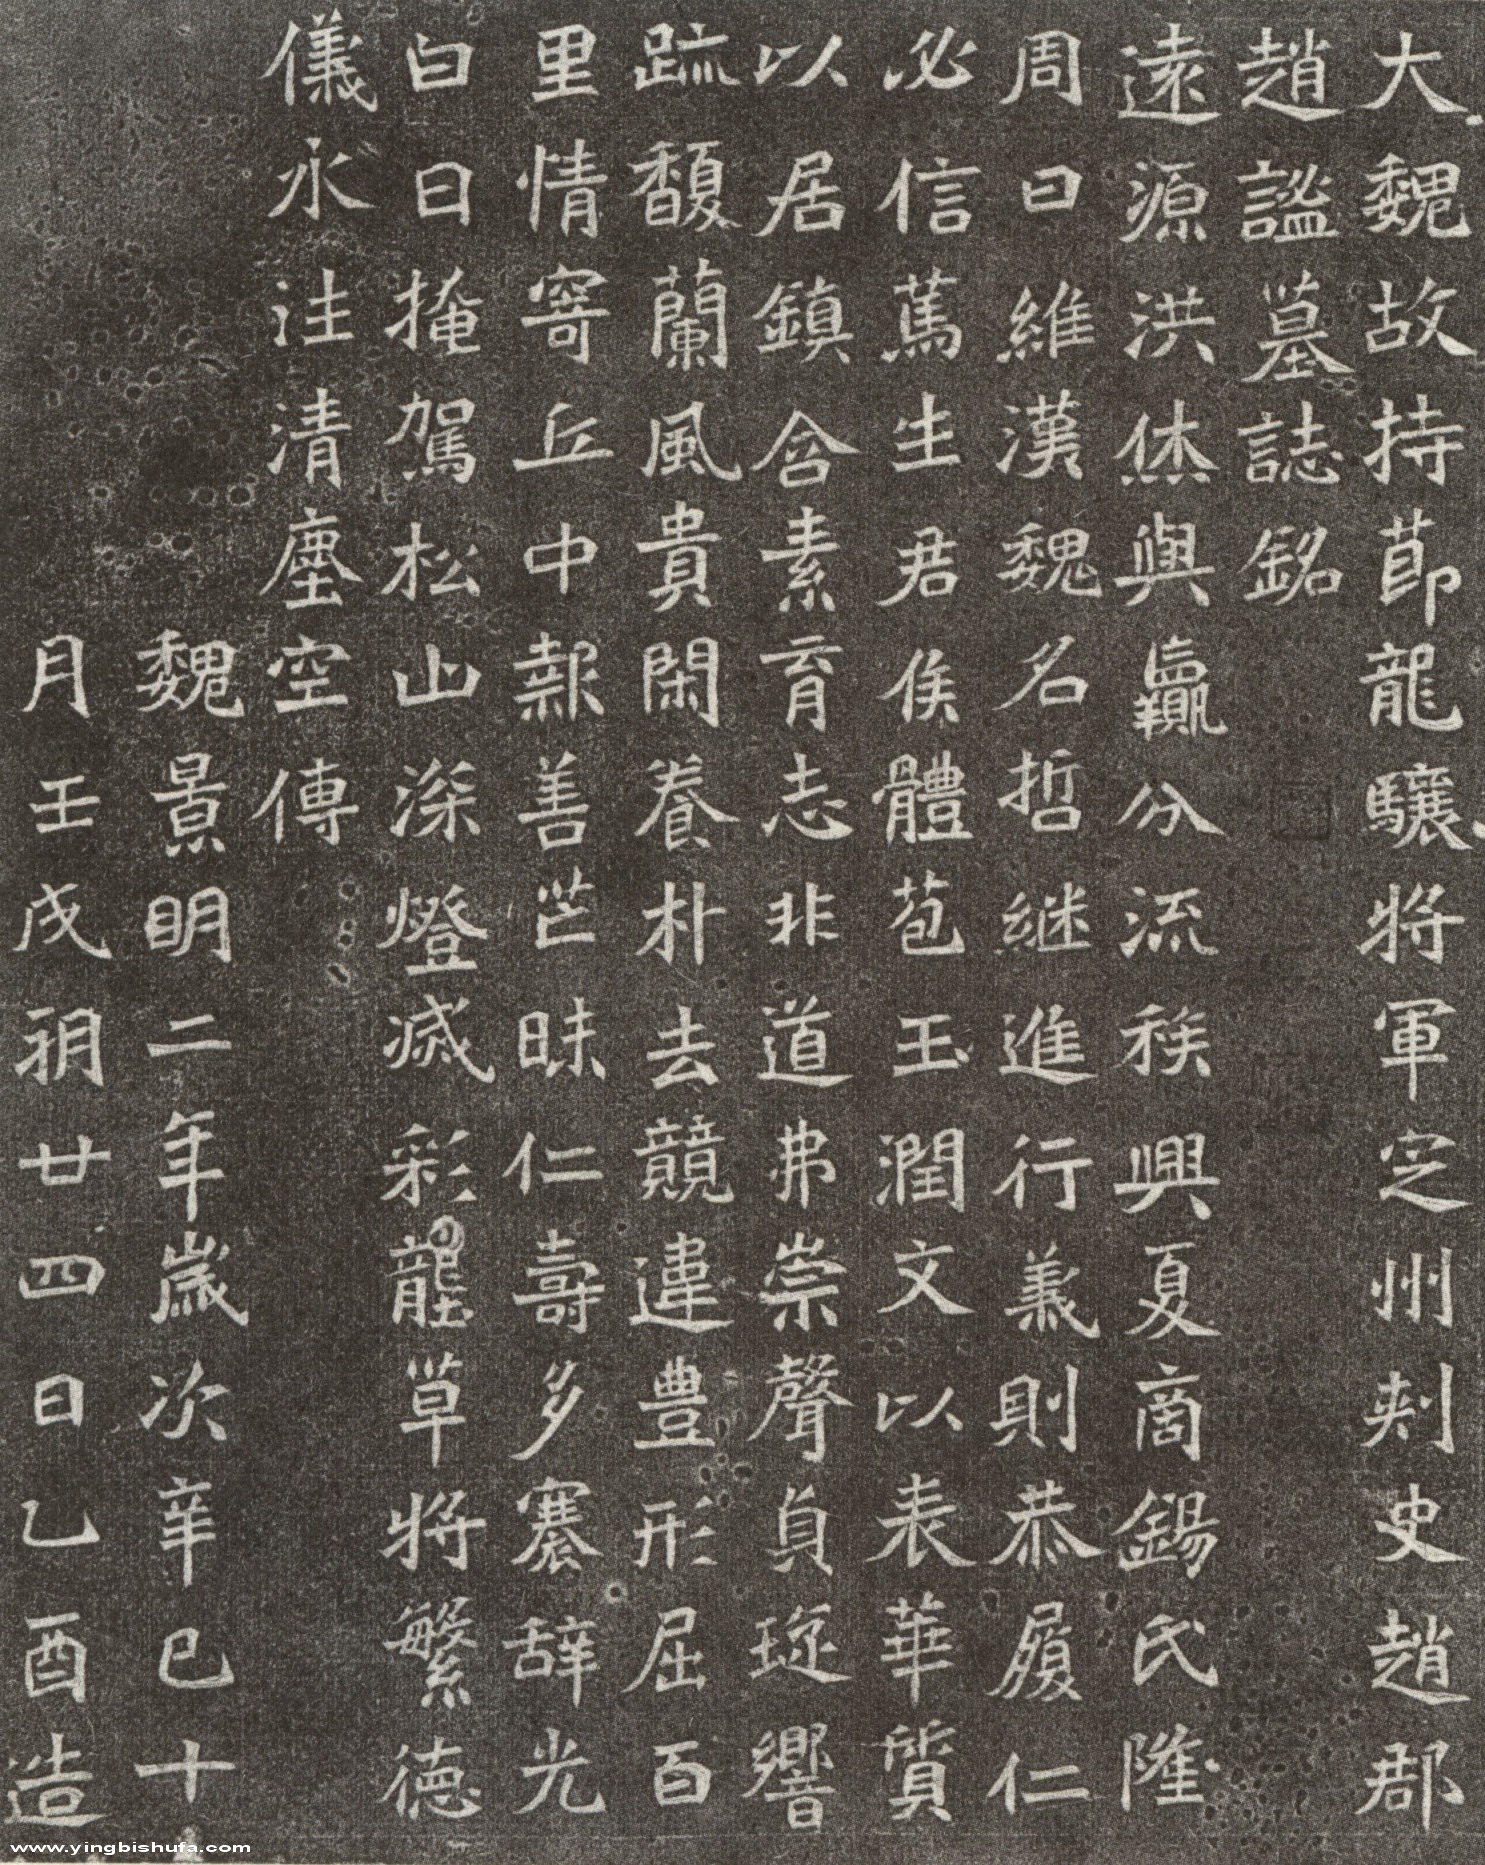 大魏故持節龍驤將軍定州刺史趙郡
趙謐墓誌銘
遠源洪休與贏分流族興夏商錫氏隆
周曰維漢魏名哲継進行義則恭履仁
必信篤生君侯體苞玉潤文以表華質
以居鎮含素育志非道弗崇聲貞琁響
疏馥蘭風貴閑養朴去競違豊形屈百
里情寄丘中報善芒昧仁壽多褰辞光
白日掩駕松山深燈滅彩壟草將繁德
儀永注清塵空傳
魏景明二年歲次辛巳十
月壬戌朔廿四日乙酉造
www.yingbishufa.com